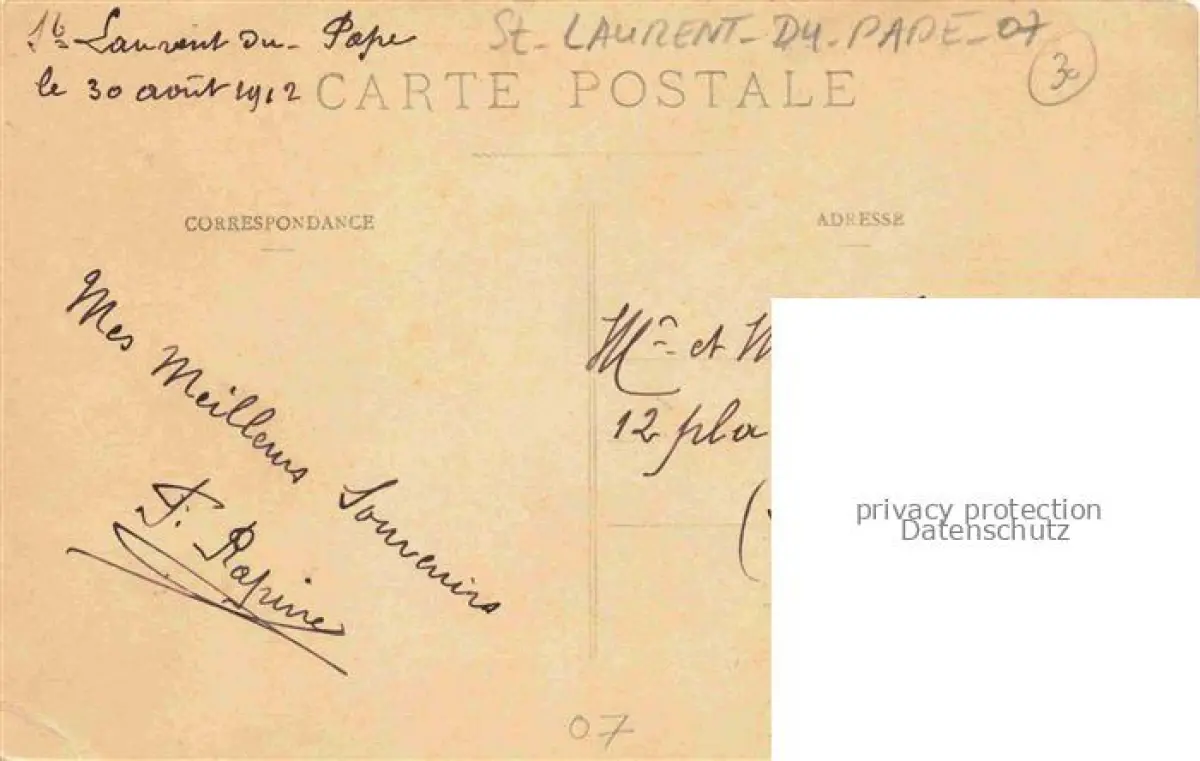 St Laurent du - Pape
le 30 août 1912
St - LAURENT - DU - PAPE - 07
3€
CARTE POSTALE
CORRESPONDANCE
ADRESSE
Mes Meilleurs Souvenirs
F. Rapine
Mr et M
12 pla
(
privacy protection
Datenschutz
07